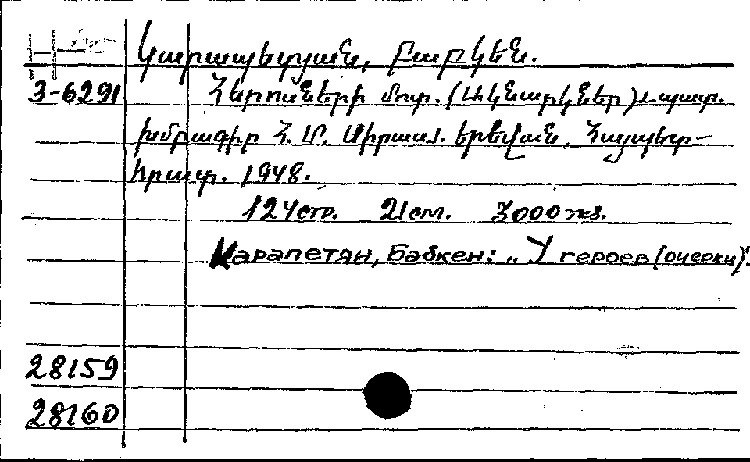 Կարապետյան, Բաբկեն.
3-6291 Հերոսների մոտ. (Ակնարկներ) Պատ.
խմբագիր Հ. Մ. Սիրաս. Երևան, Հայպետ-
հրատ. 1948.
124 стр. 21 см. 3000 экз.
Карапетян, Бабкен: „У героев (очерки)".
28159
28160